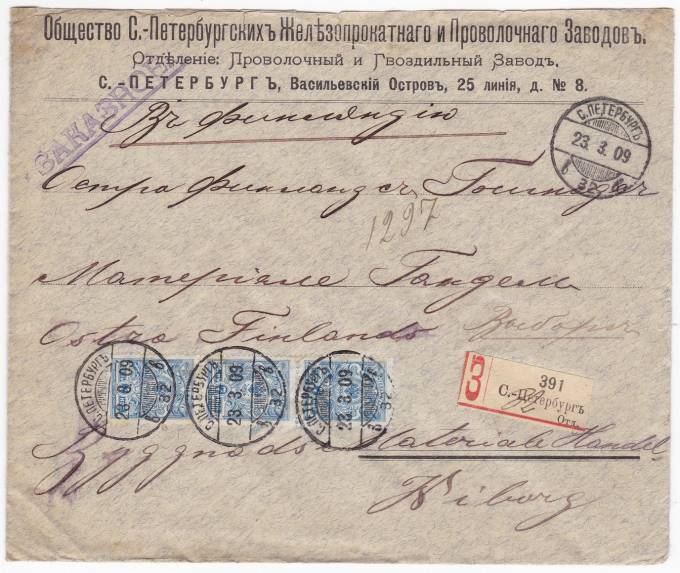 Общество С.-Петербургскихъ Желѣзопрокатнаго и Проволочнаго Заводовъ.
Отдѣленіе: Проволочный и Гвоздильный Заводъ.
С.-ПЕТЕРБУРГЪ, Васильевскій Островъ, 25 линія, д. № 8.
ЗАКАЗНОЕ
Въ Финляндію
С.ПЕТЕРБУРГЪ
23.3.09
32
Остра Финландсъ
1297
Материале Гандель
Ostra Finlands Выборгъ
С.ПЕТЕРБУРГЪ 23.3.09 32
С.ПЕТЕРБУРГЪ 23.3.09 32
С.ПЕТЕРБУРГЪ 23.3.09 32
З 391
С.-Петербургъ
Отд.
Byggnads Materiale Handel
Wiborg